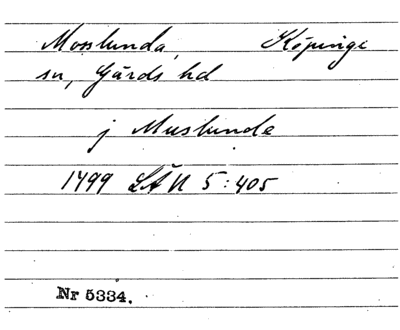 Mosslunda, Köpinge
sn, Gärds hd
j Muslunda
1499 LÄU 5:405
Nr 5334.